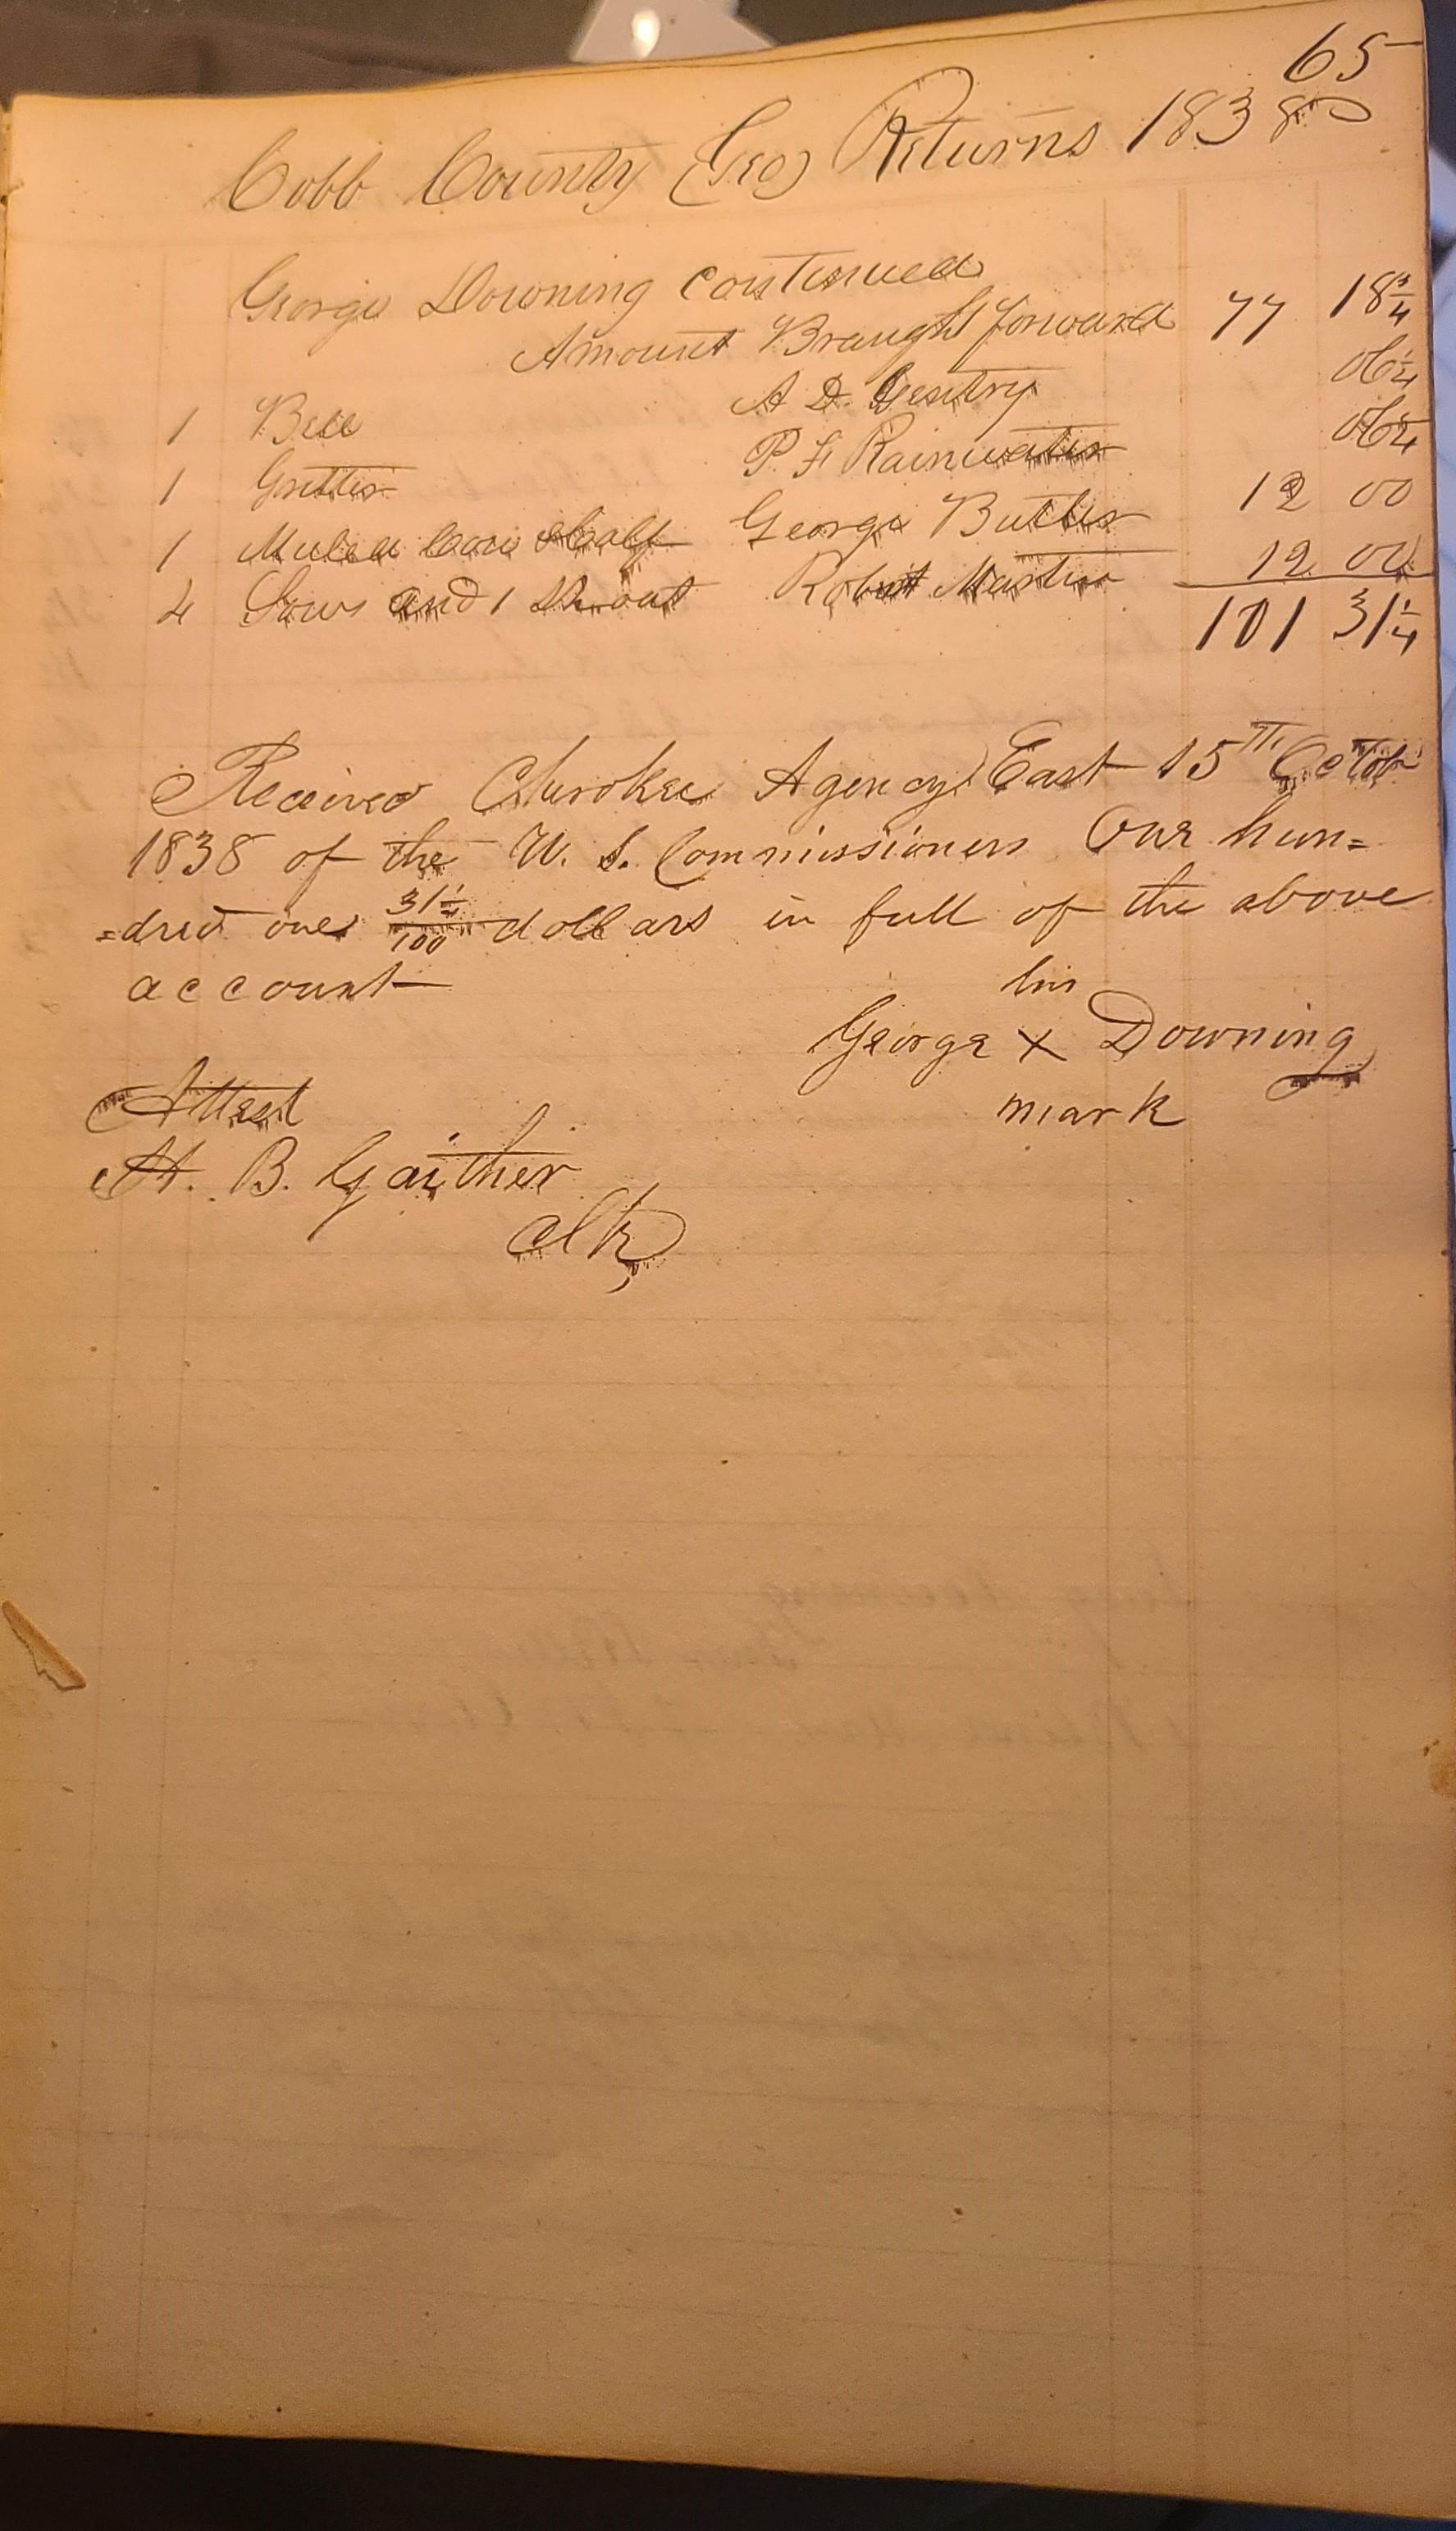 65
Cobb County (Geo) Returns 1838
George Downing continued
Amount Braught forward 77 18¾
1 Bell A D. Gentry 06¼
1 Gritter P. F. Rainwater 06¼
1 Muled Cow & Calf George Butler 12 00
4 Sows and 1 Shoat Robert Martin 12 00
101 31¼
Received Cherokee Agency East 15th Octob
1838 of the U. S. Commissioners One hun=
=dred one 31¼/100 dollars in full of the above
account
his
George X Downing
mark
Attest
H. B. Gaither
Clk